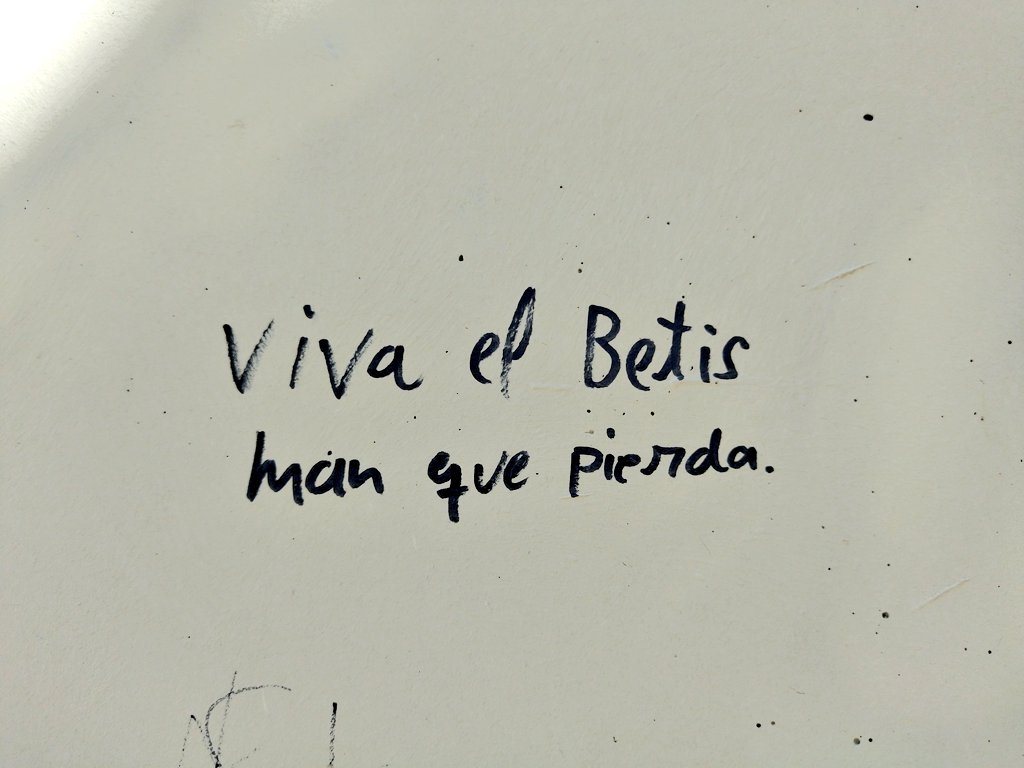 Viva el Betis
man que pierda.